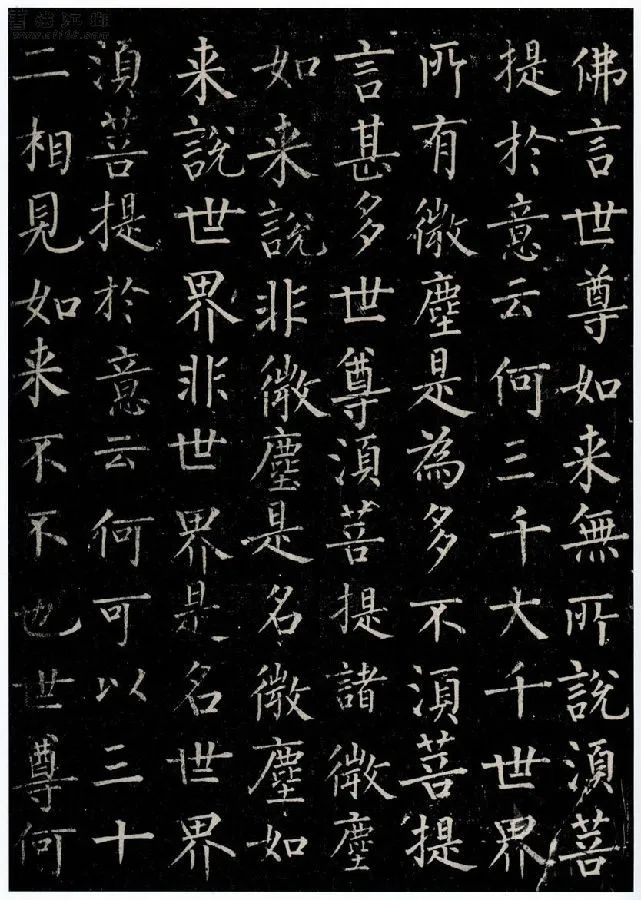 佛言世尊如来無所說湏菩
提於意云何三千大千世界
所有微塵是為多不湏菩提
言甚多世尊湏菩提諸微塵
如来說非微塵是名微塵如
来說世界非世界是名世界
湏菩提於意云何可以三十
二相見如来不不也世尊何